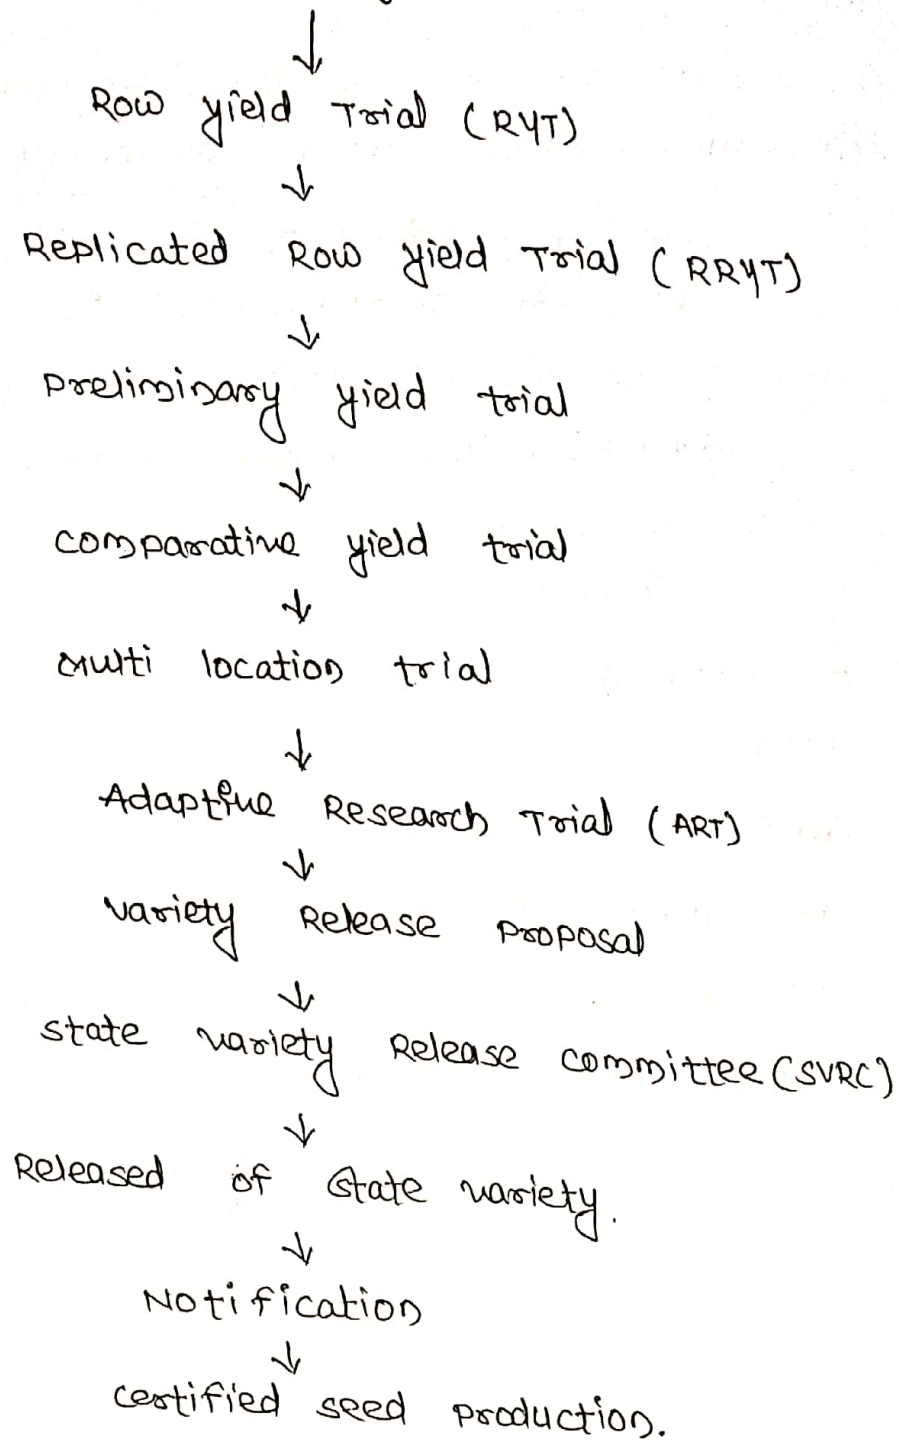 ↓
Row yield Trial (RYT)
↓
Replicated Row yield Trial (RRYT)
↓
Preliminary yield trial
↓
Comparative yield trial
↓
Multi location trial
↓
Adaptive Research Trial (ART)
↓
Variety Release Proposal
↓
State variety Release Committee (SVRC)
↓
Released of State variety.
↓
Notification
↓
Certified seed production.